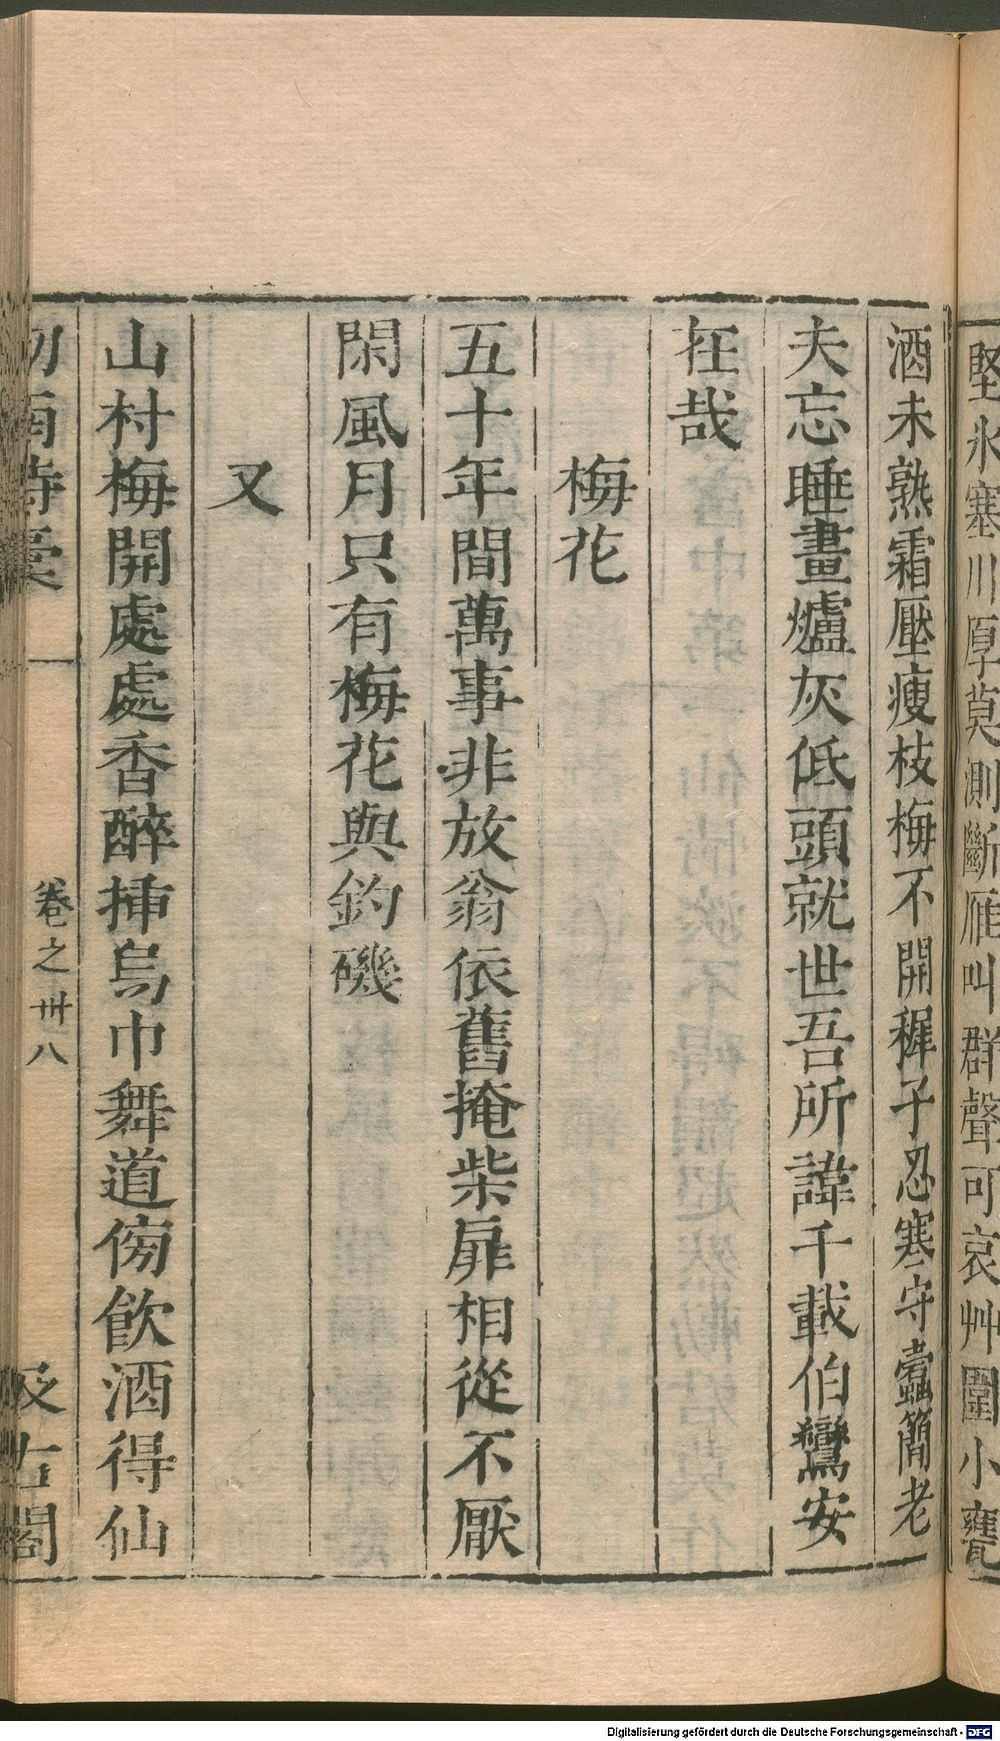 堅冰塞川厚莫測斷雁叫群聲可哀艸圍小甕
酒未熟霜壓瘦枝梅不開穉子忍寒守蠹簡老
夫忘睡畫爐灰低頭就世吾所諱千載伯鸞安
在哉
梅花
五十年間萬事非放翁依舊掩柴扉相從不厭
閑風月只有梅花與釣磯
又
山村梅開處處香醉揷烏巾舞道傍飲酒得仙
劍南詩稾
卷之卅八
汲古閣
Digitalisierung gefördert durch die Deutsche Forschungsgemeinschaft - DFG